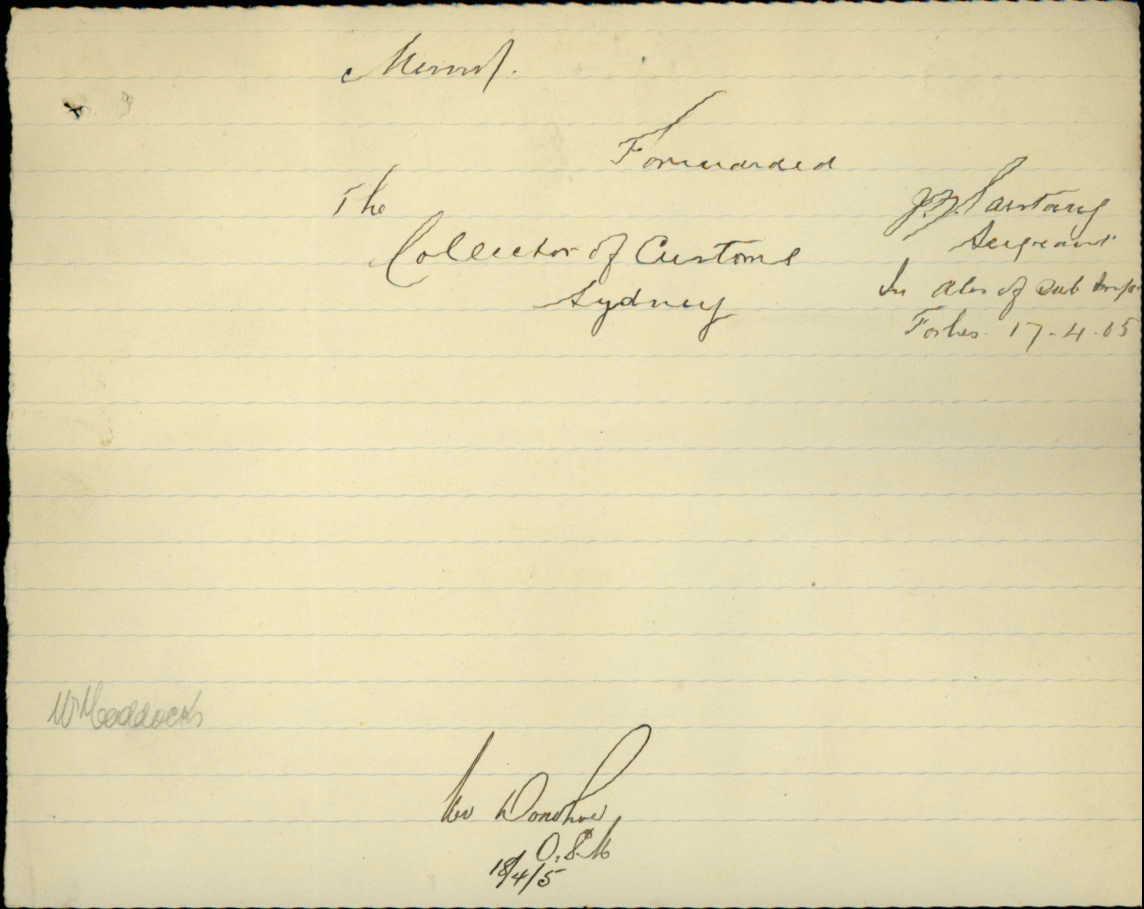 Forwarded
The
Collector of Customs
Sydney
Sergeant
In abs of Sub Insp
Forbes 17-4-05
Mr Donohoe
18/4/5